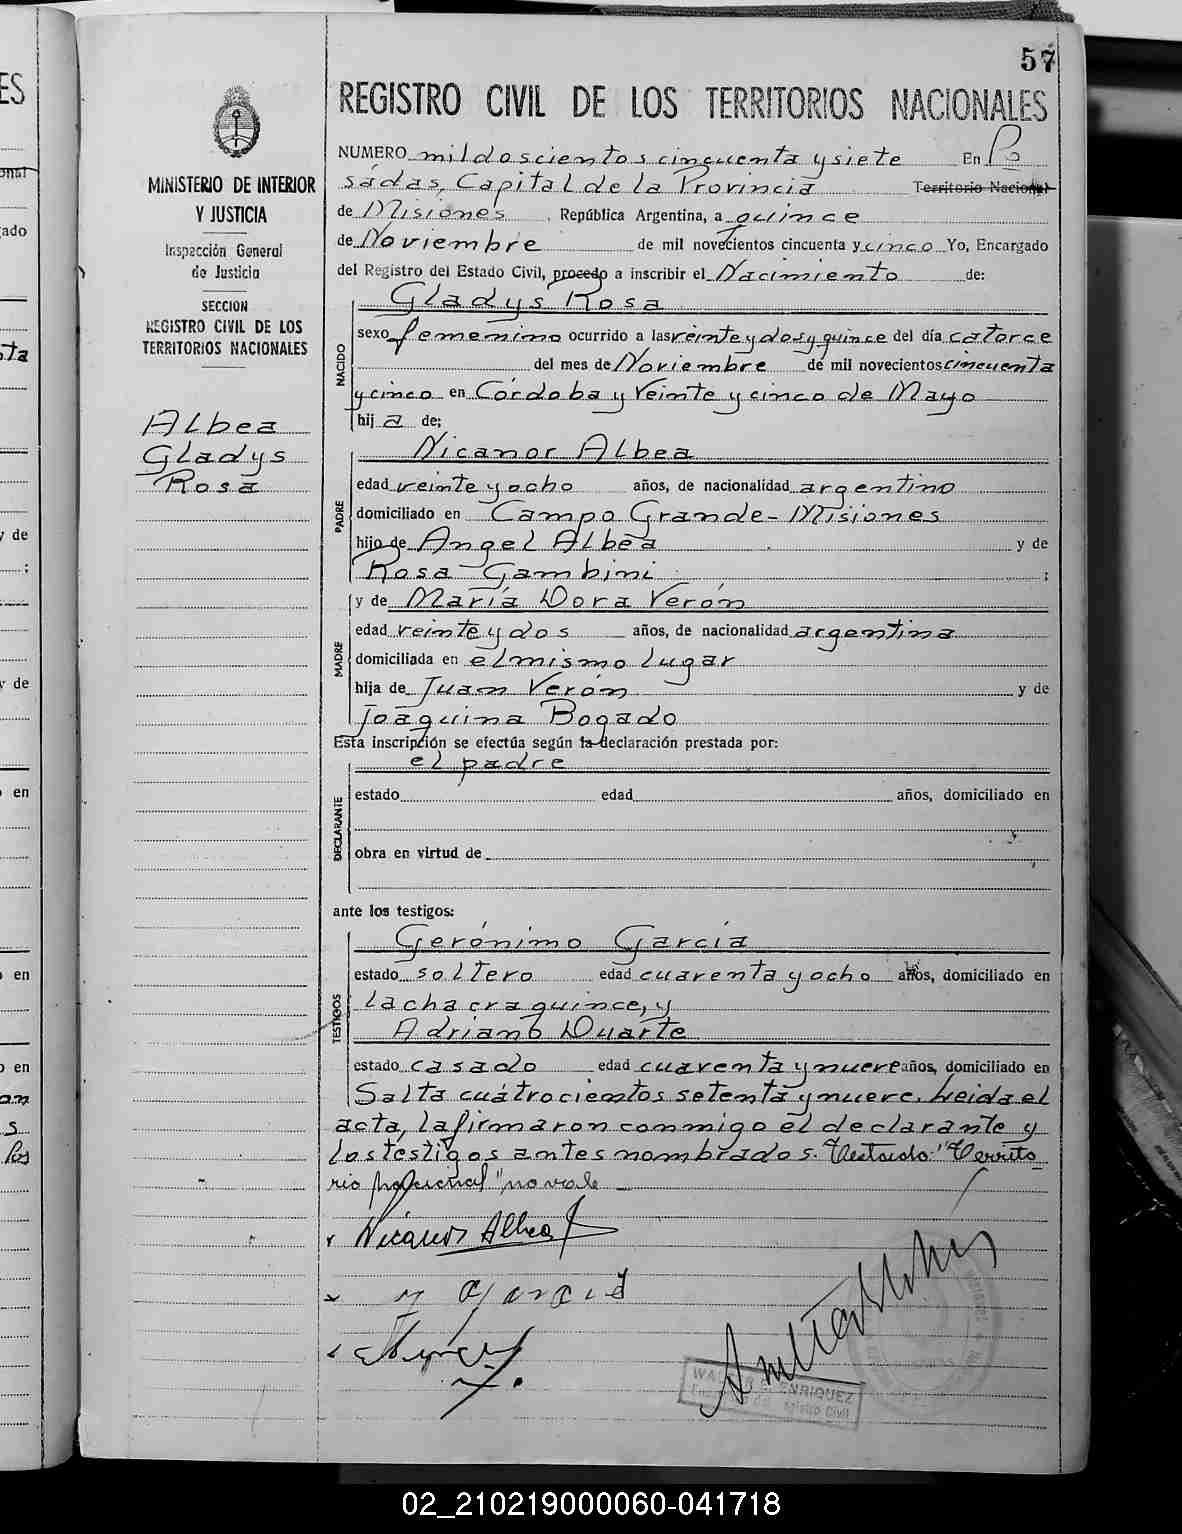 57
REGISTRO CIVIL DE LOS TERRITORIOS NACIONALES
MINISTERIO DE INTERIOR
Y JUSTICIA
Inspección General
de Justicia
SECCION
REGISTRO CIVIL DE LOS
TERRITORIOS NACIONALES
Albea
Gladys
Rosa
NUMERO mil doscientos cincuenta y siete En Po
sádas, Capital de la Provincia Territorio Nacional
de Misiones, República Argentina, a quince
de Noviembre de mil novecientos cincuenta y cinco Yo, Encargado
del Registro del Estado Civil, procedo a inscribir el Nacimiento de:
NACIDO
Gladys Rosa
sexo femenino ocurrido a las veinte y dos y quince del día catorce
del mes de Noviembre de mil novecientos cincuenta
y cinco en Córdoba y Veinte y cinco de Mayo
hij a de:
PADRE
Nicanor Albea
edad veinte y ocho años, de nacionalidad argentino
domiciliado en Campo Grande - Misiones
hijo de Angel Albea y de
Rosa Gambini ;
MADRE
y de María Dora Verón
edad veinte y dos años, de nacionalidad argentina
domiciliada en el mismo lugar
hija de Juan Verón y de
Joaquina Bogado
Esta inscripción se efectúa según la declaración prestada por:
DECLARANTE
el padre
estado edad años, domiciliado en
obra en virtud de
ante los testigos:
TESTIGOS
Gerónimo García
estado soltero edad cuarenta y ocho años, domiciliado en
la chacra quince, y
Adriano Duarte
estado casado edad cuarenta y nueve años, domiciliado en
Salta cuátrocientos setenta y nueve. Leida el
acta, la firmaron conmigo el declarante y
los testigos antes nombrados. Testado: "Territo
rio nacional", no vale
Nicanor Albea
García
WALTER ENRIQUEZ
Registro Civil
02_210219000060-041718